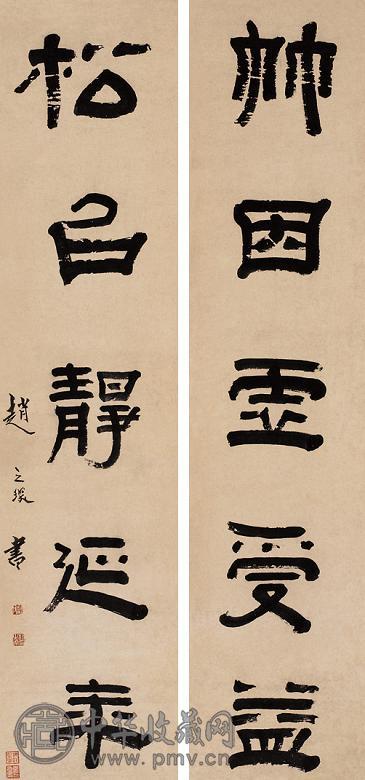 竹因虛受益
松㠯靜延年
趙之琛書
中华收藏网
www.pmv.cn